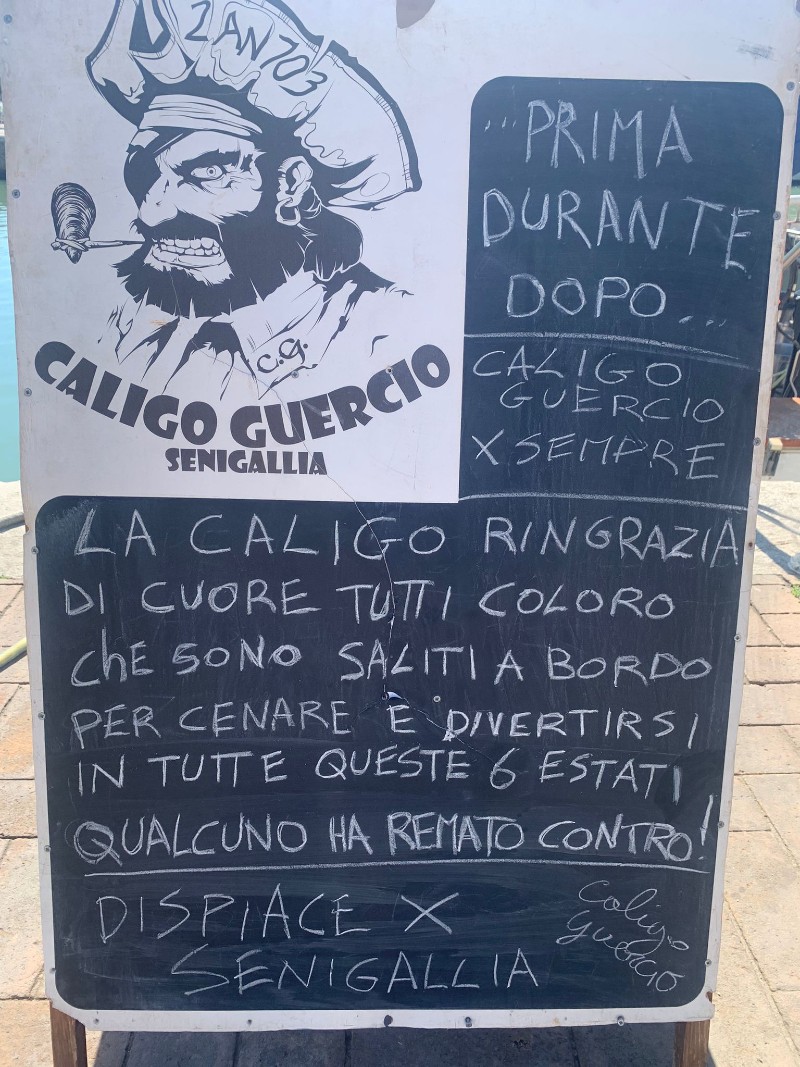 2 AN 703
c.g.
CALIGO GUERCIO
SENIGALLIA
...PRIMA
DURANTE
DOPO....
CALIGO
GUERCIO
X SEMPRE
LA CALIGO RINGRAZIA
DI CUORE TUTTI COLORO
ChE SONO SALITI A BORDO
PER CENARE E DIVERTIRSI
IN TUTTE QUESTE 6 ESTATI
QUALCUNO HA REMATO CONTRO!
DISPIACE X
SENIGALLIA
Caligo
Guercio